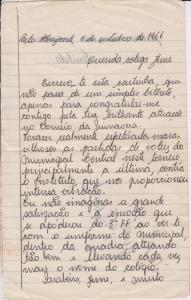 Belo Horizonte 5 de outubro de 1966
Querida colega June
Escrevo-te esta cartinha, que
não passa de um simples bilhete,
apenas para congratular-me
contigo pela tua brilhante atuação
no Torneio da Primavera.
Foram realmente espetáculos mara-
vilhosos as partidas de volei do
Municipal Central neste torneio
principalmente a última, contra
o Instituto que nos proporcionou
intensa vibração.
Eu não imaginas a grande
satisfação e a emoção que
se apoderou do 3º FF ao ver-te
com o uniforme do Municipal,
dentro da quadra, atuando
tão bem e elevando cada vez
mais o nome do colégio.
Parabéns, June, e muito